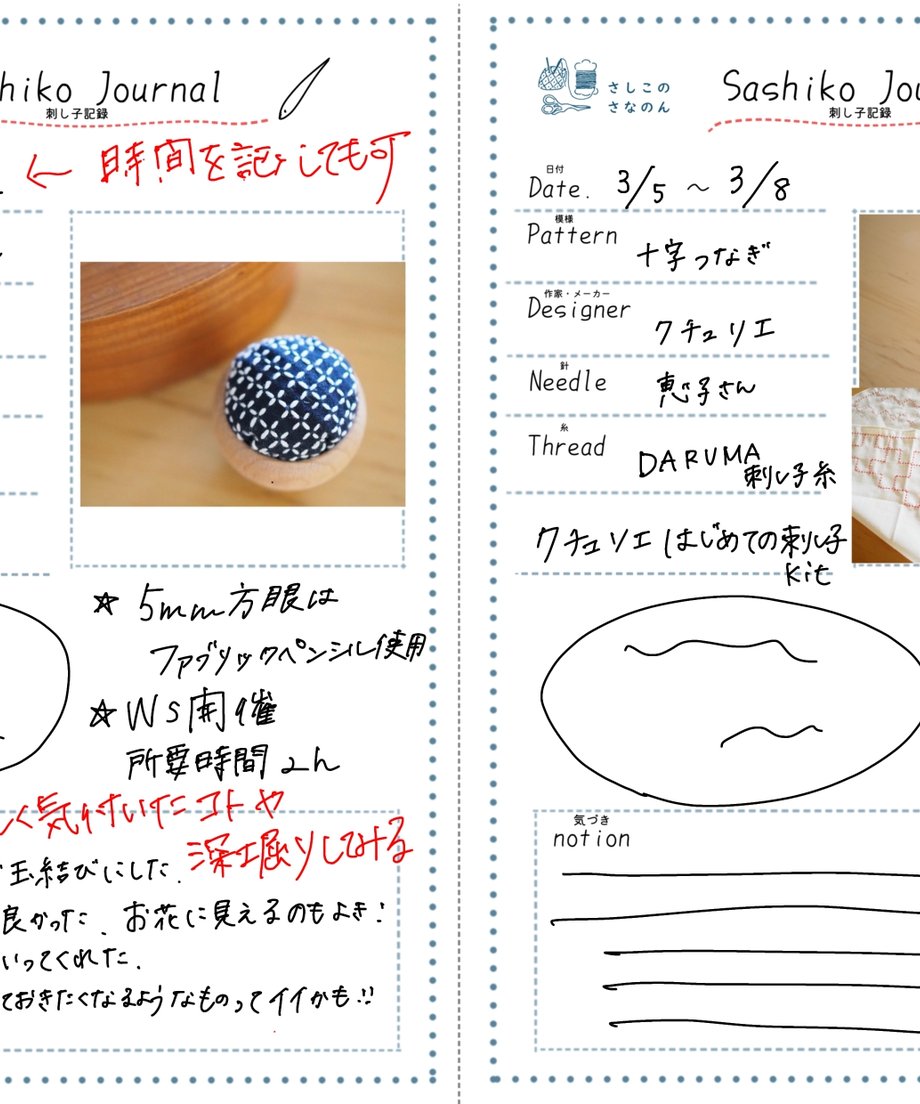 hiko Journal
刺し子記録
← 時間を記入しても可
☆ 5mm方眼は
ファブリックペンシル使用
☆ WS開催
所要時間 2h
く気付いたコトや
深堀りしてみる
玉結びにした.
良かった. お花に見えるのもよき!
いってくれた.
ておきたくなるようなものってイイかも!!
さしこの
さなのん
Sashiko Jou
刺し子記録
日付
Date. 3/5 ~ 3/8
模様
Pattern 十字つなぎ
作家・メーカー
Designer クチュリエ
針
Needle 恵子さん
糸
Thread DARUMA
刺し子糸
クチュリエ はじめての刺し子
kit
気づき
notion